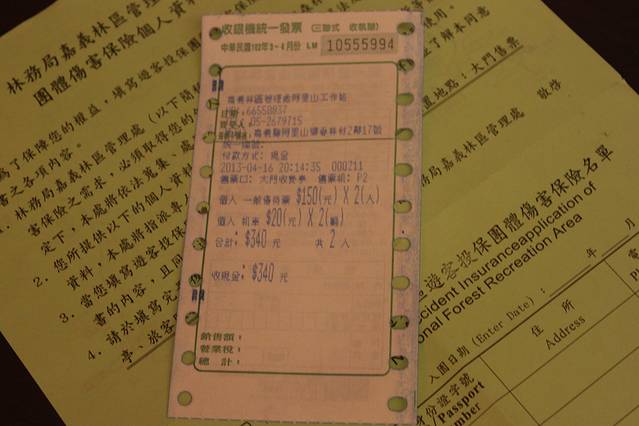 收銀機統一發票 (三聯式 收執聯)
中華民國102年3-4月份 LM 10555994
嘉義林區管理處阿里山工作站
66558837
05-2679715
嘉義縣阿里山鄉香林村2鄰17號
統一編號:
付款方式: 現金
2013-04-16 20:14:35 000211
售票口: 大門收費亭 售票組: P2
個人 一般優待票 $150(元) X 2(人)
個人 機車 $20(元) X 2(輛)
合計: $340 元 共 2 人
收現金: $340 元
銷售額:
營業稅:
總計:
林務局嘉義林區管理
團體傷害保險個人資
為了保障您的權益,填寫遊客投保團
書之各項內容。
1. 林務局嘉義林區管理處 (以下簡
害保險之需求,必須取得您的
定下,本處將依法蒐集、處
2. 您所提供以下的個人資料
資料,本處將指派專
3. 當您填寫遊客投保
書的內容,且同
4. 請於填寫完
亭、旅客
使用。
了解本同意
置地點:大門售票
敬啟
區遊客投保團體傷害保險名單
ccident Insuranceapplication of
onal Forest Recreation Area
年 月
入園日期 (Enter Date):
住 所
Address
身份證字號
Passport
umber